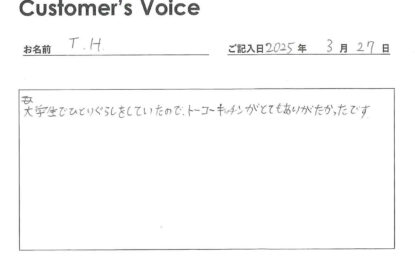 Customer's Voice
お名前 T.H. ご記入日2025年 3月27日
大学生でひとりぐらしをしていたので、トーコーキッチンがとてもありがたかったです